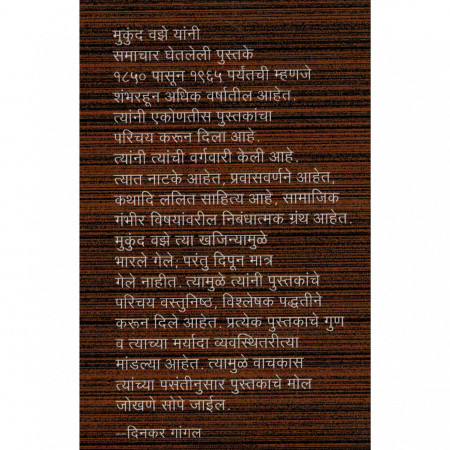 मुकुंद वझे यांनी
समाचार घेतलेली पुस्तके
१८५० पासून १९६५ पर्यंतची म्हणजे
शंभरहून अधिक वर्षातील आहेत.
त्यांनी एकोणतीस पुस्तकांचा
परिचय करून दिला आहे.
त्यांनी त्यांची वर्गवारी केली आहे.
त्यात नाटके आहेत, प्रवासवर्णने आहेत,
कथादि ललित साहित्य आहे, सामाजिक
गंभीर विषयांवरील निबंधात्मक ग्रंथ आहेत.
मुकुंद वझे त्या खजिन्यामुळे
भारले गेले, परंतु दिपून मात्र
गेले नाहीत. त्यामुळे त्यांनी पुस्तकांचे
परिचय वस्तुनिष्ठ, विश्लेषक पद्धतीने
करून दिले आहेत. प्रत्येक पुस्तकाचे गुण
व त्याच्या मर्यादा व्यवस्थितरीत्या
मांडल्या आहेत. त्यामुळे वाचकास
त्यांच्या पसंतीनुसार पुस्तकाचे मोल
जोखणे सोपे जाईल.
--दिनकर गांगल